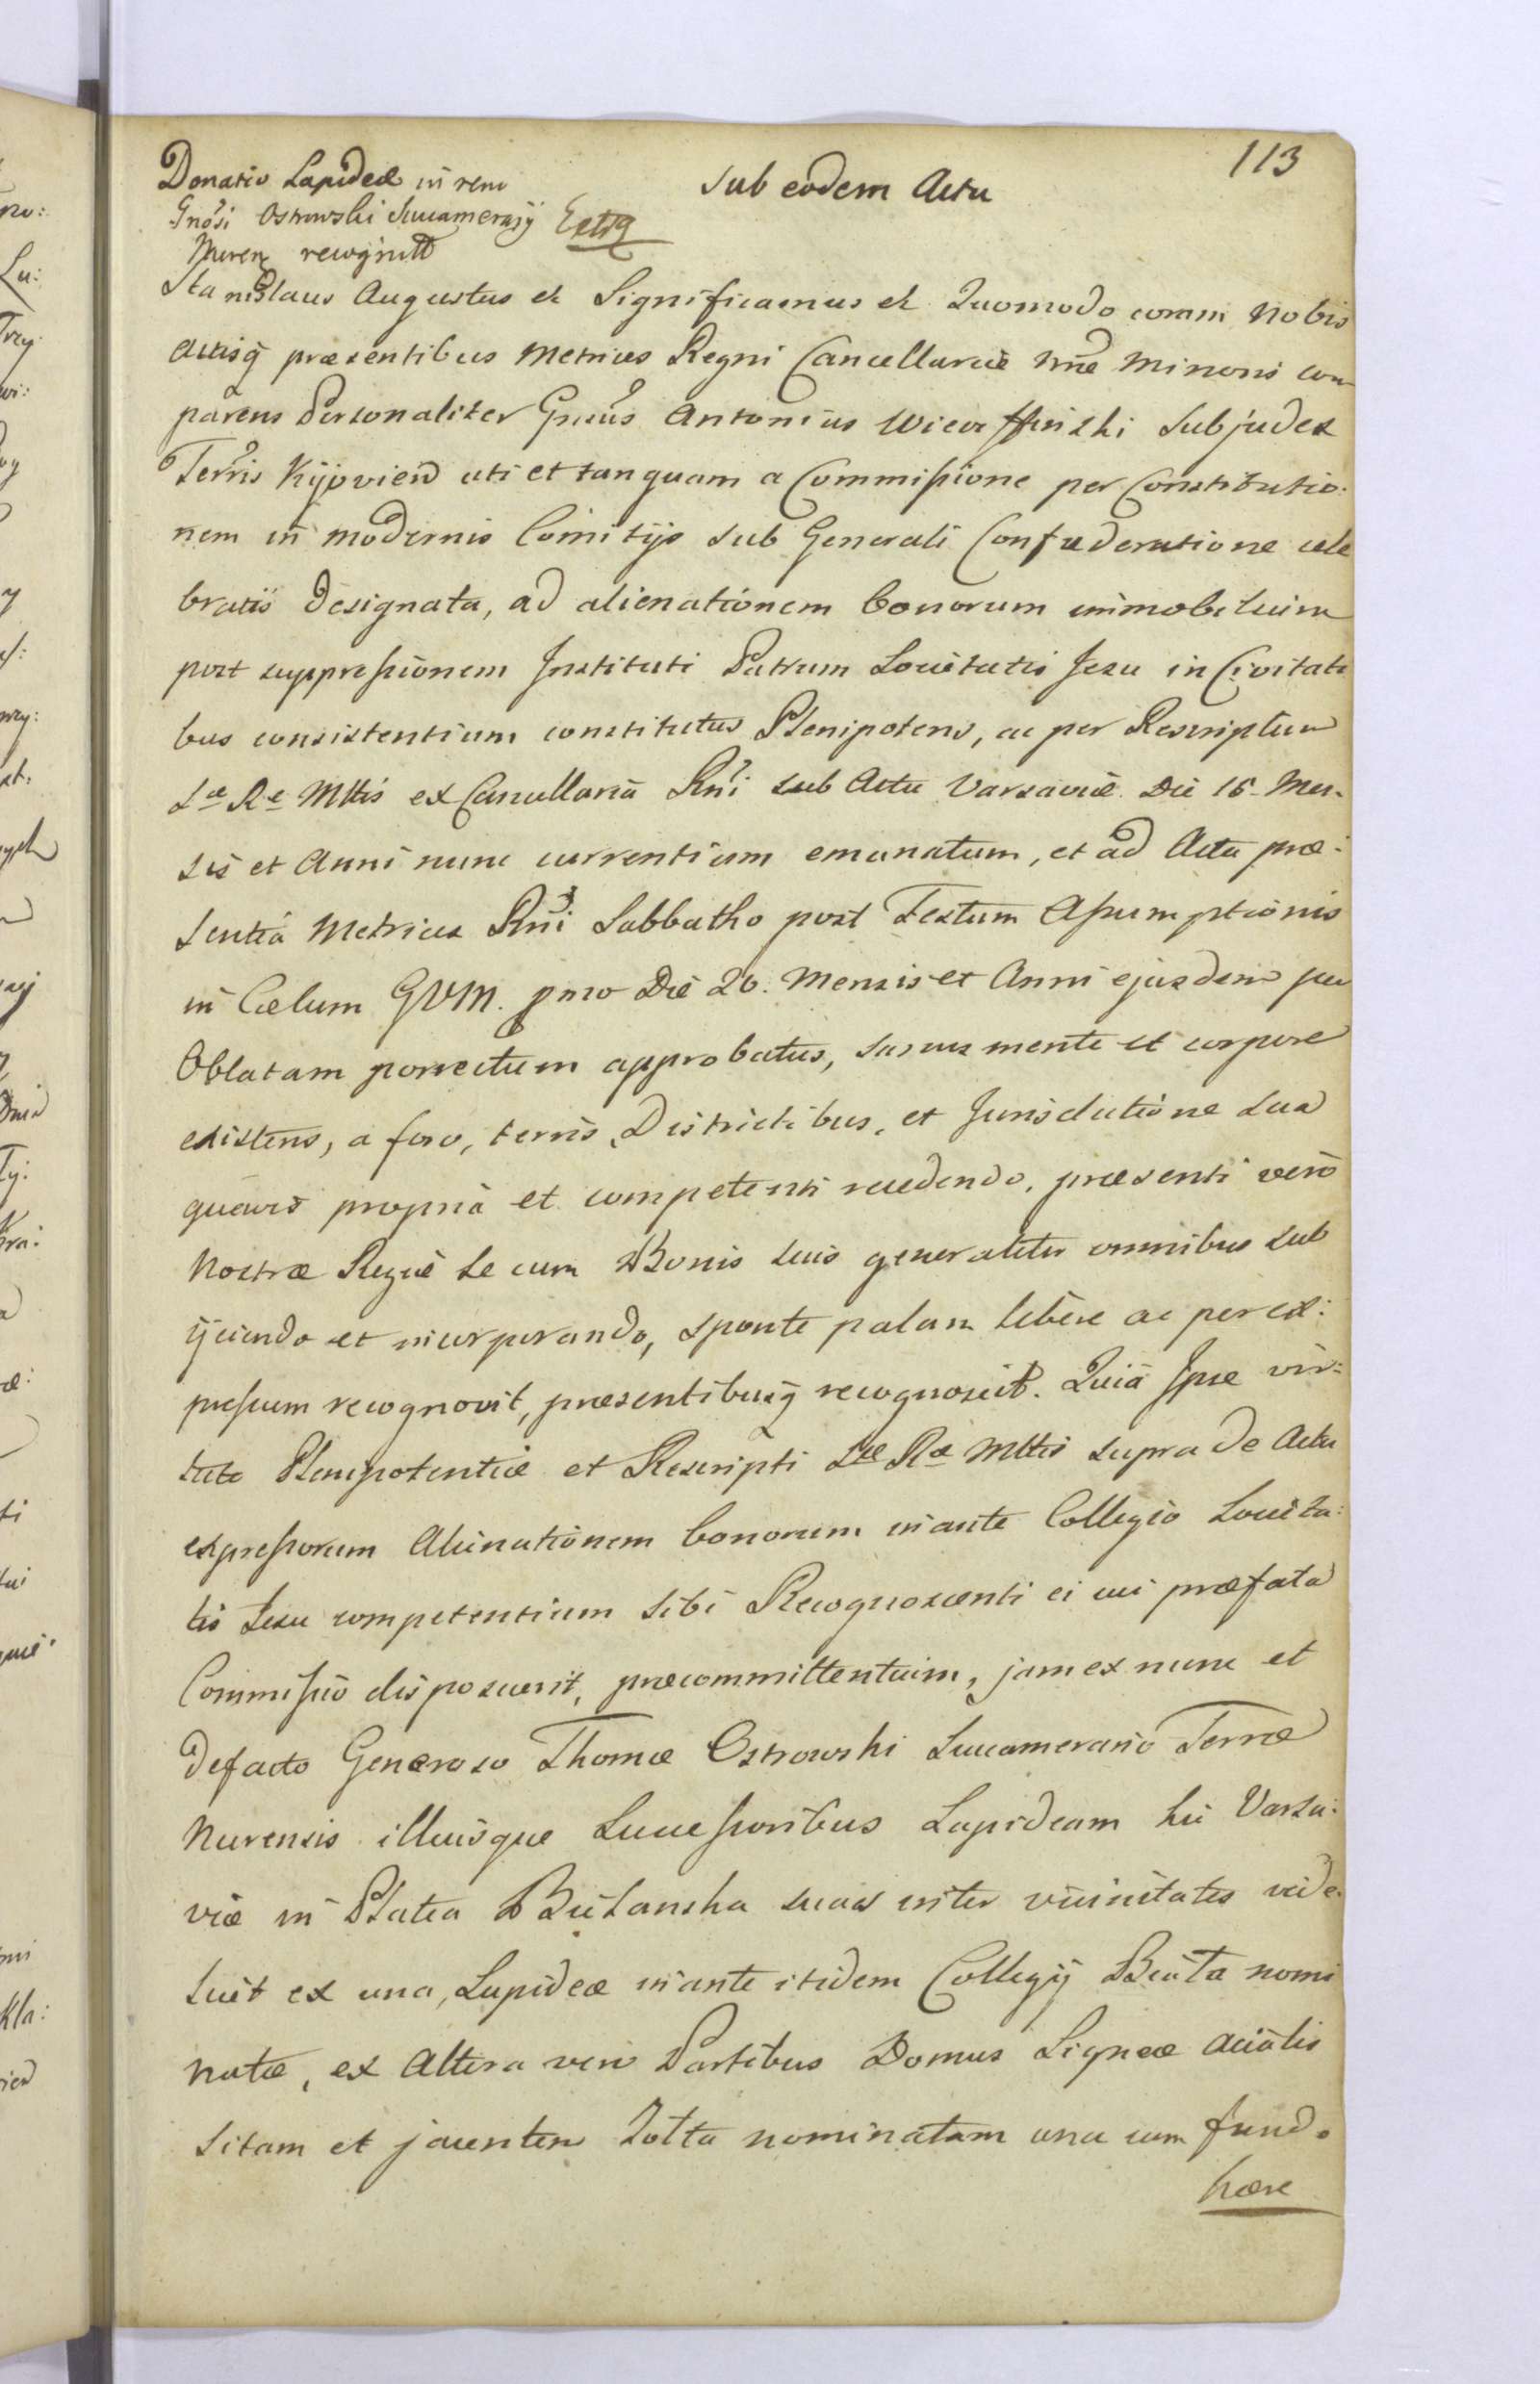 113
Donatio Lapideæ in rem
Gnosi Ostrowski Succamerarij Extrą
Nuren recognitt
Sub eodem Actu
Stanislaus Augustus et Significamus et Quomodo coram Nobis
actisq præsentibus Metrices Regni Cancellariæ Mne Minoris com
parens Personaliter Gnsus Antonius Subjudex
Terris Kijovien uti et tanquam a Commissione per Constitutio:
nem in modernis Comitijs sub Generali Confæderatione cele
bratis designata, ad alienationem bonorum immobilium
post suppressionem Instituti Patrum Societatis Jesu in Civitati
bus consistentium constitutus Plenipotens, ac per Rescriptum
Sæ Re Mttis ex Cancellaria Rni sub Actu Varsaviæ Die 16 Men.
sis et Anni nunc currentium emanatum, et ad Acta præ:
sentia Metrices Rni Sabbatho post Festum Assumptionis
in Cælum GVM. pmo Die 20. Mensis et Anni ejusdem per
Oblatam porrectum approbatus, sanus mente et corpore
existens, a foro, terris, Districtibus, et Jurisdictione sua
quavis propria et competenti recedendo, præsenti vero
Nostræ Regiæ se cum Bonis suis generaliter omnibus sub
ijciendo et incorporando, sponte palam libere ac per ex:
pressum recognovit, præsentibusq recognoscit. Quia Ipse vir:
tute Plenipotentiæ et Rescripti Sæ Ræ Mttis supra de Actu
expressorum Alienationem bonorum inante Collegio Societa:
tis Jesu competentium sibi Recognoscenti ei cui præfata
Commissio disposuerit, præcommittentium, jam ex nunc et
defacto Generoso Thomæ Ostrowski Succamerario Terræ
Nurensis illiusque Successoribus Lapideam hic Varsa:
viæ in Platea Bielanska suas inter vicinitates vide.
licet ex una, Lapideæ inante itidem Collegij Biała nomi
natæ, ex Altera vero Partibus Domus Ligneæ Acialis
sitam et jacentem Zołta nominatam una cum fundo
hære